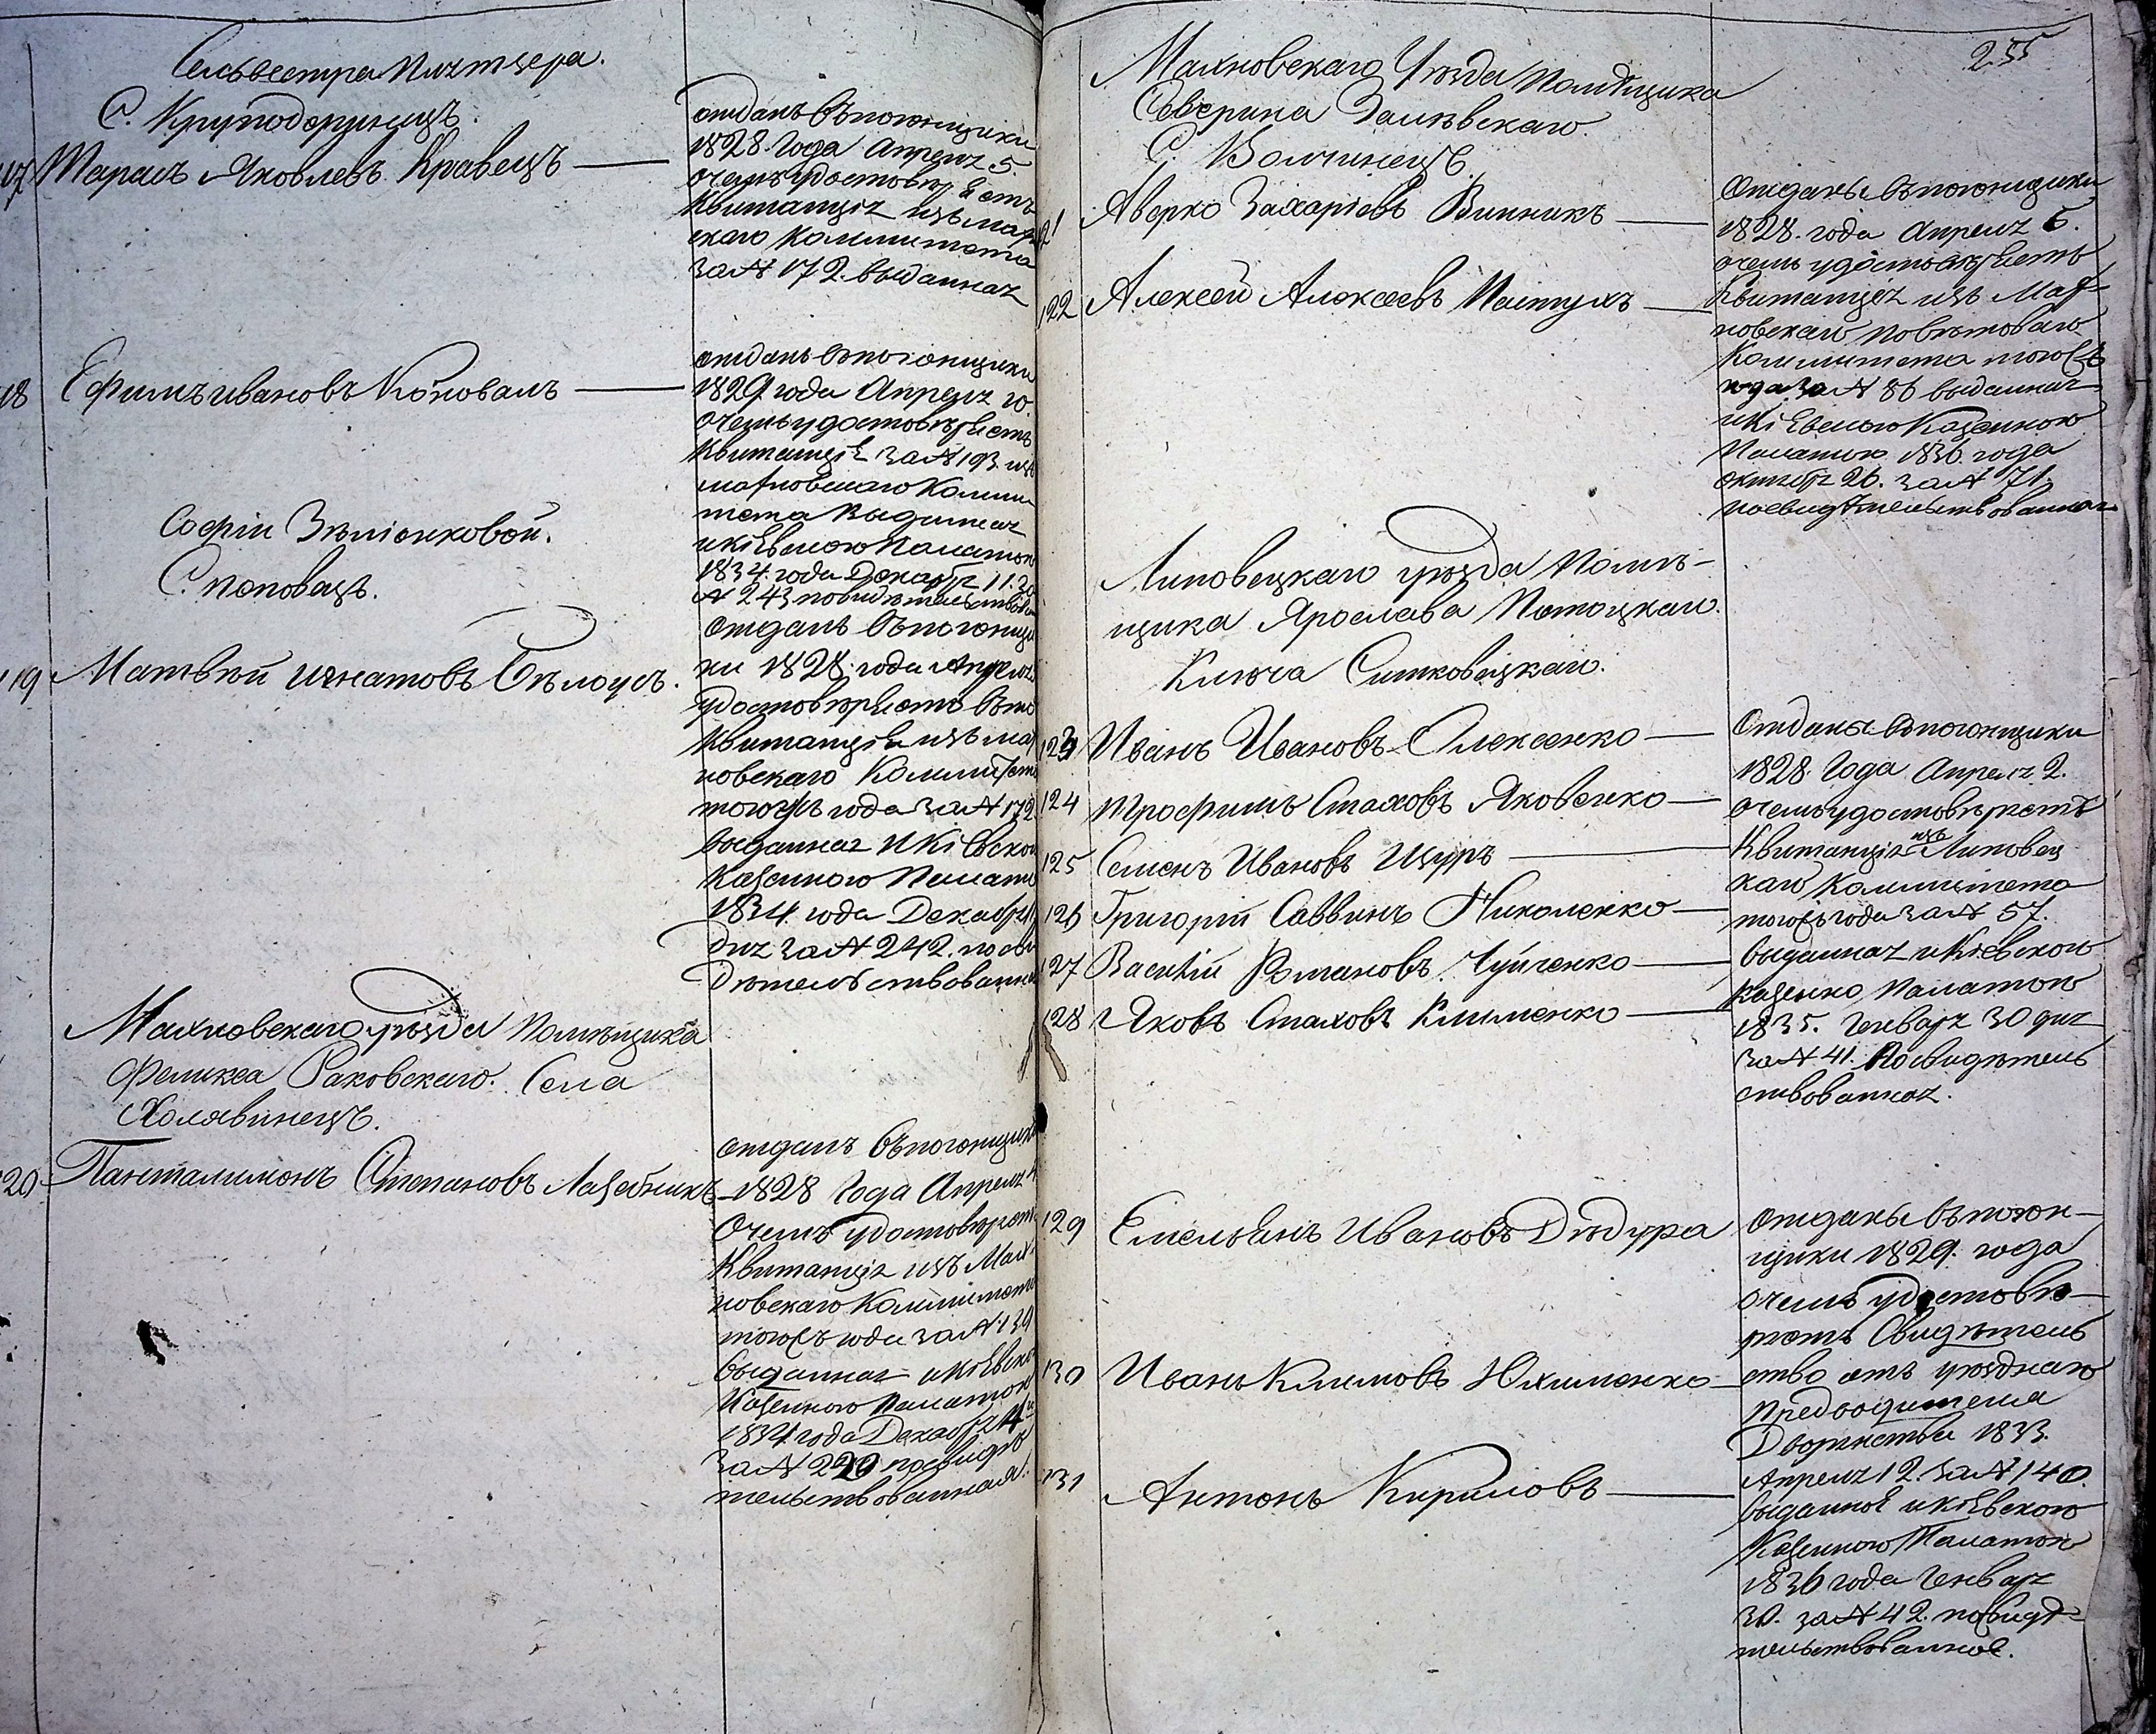 Сельвестра Пихтцера.
С. Круподеринецъ.
117 Тарасъ Яковлевъ Кравецъ —
отданъ въ погонщики
1828. Года Апреля 5.
очемъ удостовѣряетъ
Квитанція изъ Мах
скаго Коммитета
за № 172. выданная
118 Ефимъ Ивановъ Коновалъ —
отданъ въ погонщики
1829 года Апреля 10.
очемъ удостовѣряетъ
Квитанціе за № 193. изъ
махновскаго Комми
тета выданная
и кіевскою Палатою
1834. года Декабря 11. за
№ 243 посвидѣтельствован
Софіи Зѣліонковой.
С. Поповецъ.
119 Матвѣй Игнатовъ Бѣлоусъ.
отданъ въ погонщи
ки 1828. года Апреля
удостовѣряетъ въ то
Квитанція изъ мах
новскаго Коммитета
тогожъ года за № 172
выданная и Кіевскою
Казенною Палатою
1834. года Декабря 11
дня за № 242. посви
дѣтельствованная
Махновскаго уѣзда помѣщика
Феликса Раковскаго. Села
Холявинецъ.
120 Панталимонъ Степановъ Лазебникъ —
отданъ въ погонщики
1828 Года Апреля 4
Очемъ удостовѣряетъ
Квитанція изъ Мах-
новскаго Коммитета
тогожъ года за № 139
выданная и кіевскою
Казенною Палатою
1834 года Декабря 14
за № 220 посвидѣ
тельствованная.
255
Махновскаго Уѣзда помѣщика
Северина Залѣвскаго.
С. Волчинецъ
121 Аверко Захаріевъ Винникъ —
122 Алексей Алексеевъ Пастухъ —
Отданы въ погонщики
1828. года Апреля 6.
очемъ удостовѣряетъ
Квитанція изъ Мах-
новскаго повѣтоваго
Коммитета тогожъ
года за № 86 выданная
и кіевскою Казенною
Палатою 1836. года
октября 26. за № 71.
посвидѣтельствованная
Липовецкаго уѣзда помѣ-
щика Ярослава Потоцкаго.
Ключа Ситковецкаго.
123 Иванъ Ивановъ Олексенко —
124 Трофимъ Стаховъ Яковенко —
125 Семенъ Ивановъ Щуръ —
126 Григорій Саввинъ Николенко —
127 Василій Романовъ Чуйченко —
128 Яковъ Стаховъ Клименко —
Отданы въ погонщики
1828. Года Апреля 2.
очемъ удостовѣряетъ
Квитанція изъ Липовец
каго Коммитета
тогожъ года за № 57.
выданная и Кіевскою
Казенною Палатою
1835. Генваря 30 дня
за № 41. Посвидѣтель
ствованная.
129 Емельянъ Ивановъ Дюдура
130 Иванъ Климовъ Юхименко —
131 Антонъ Кириловъ —
отданы въ погон-
щики 1829. года
очемъ удостовѣ-
ряетъ Свидѣтель
ство отъ уѣзднаго
предводителя
Дворянства 1833.
Апреля 12. за № 140.
выданное и кіевскою
Казенною Палатою
1836 года Генваря
30. за № 42. посвидѣ-
тельствованное.